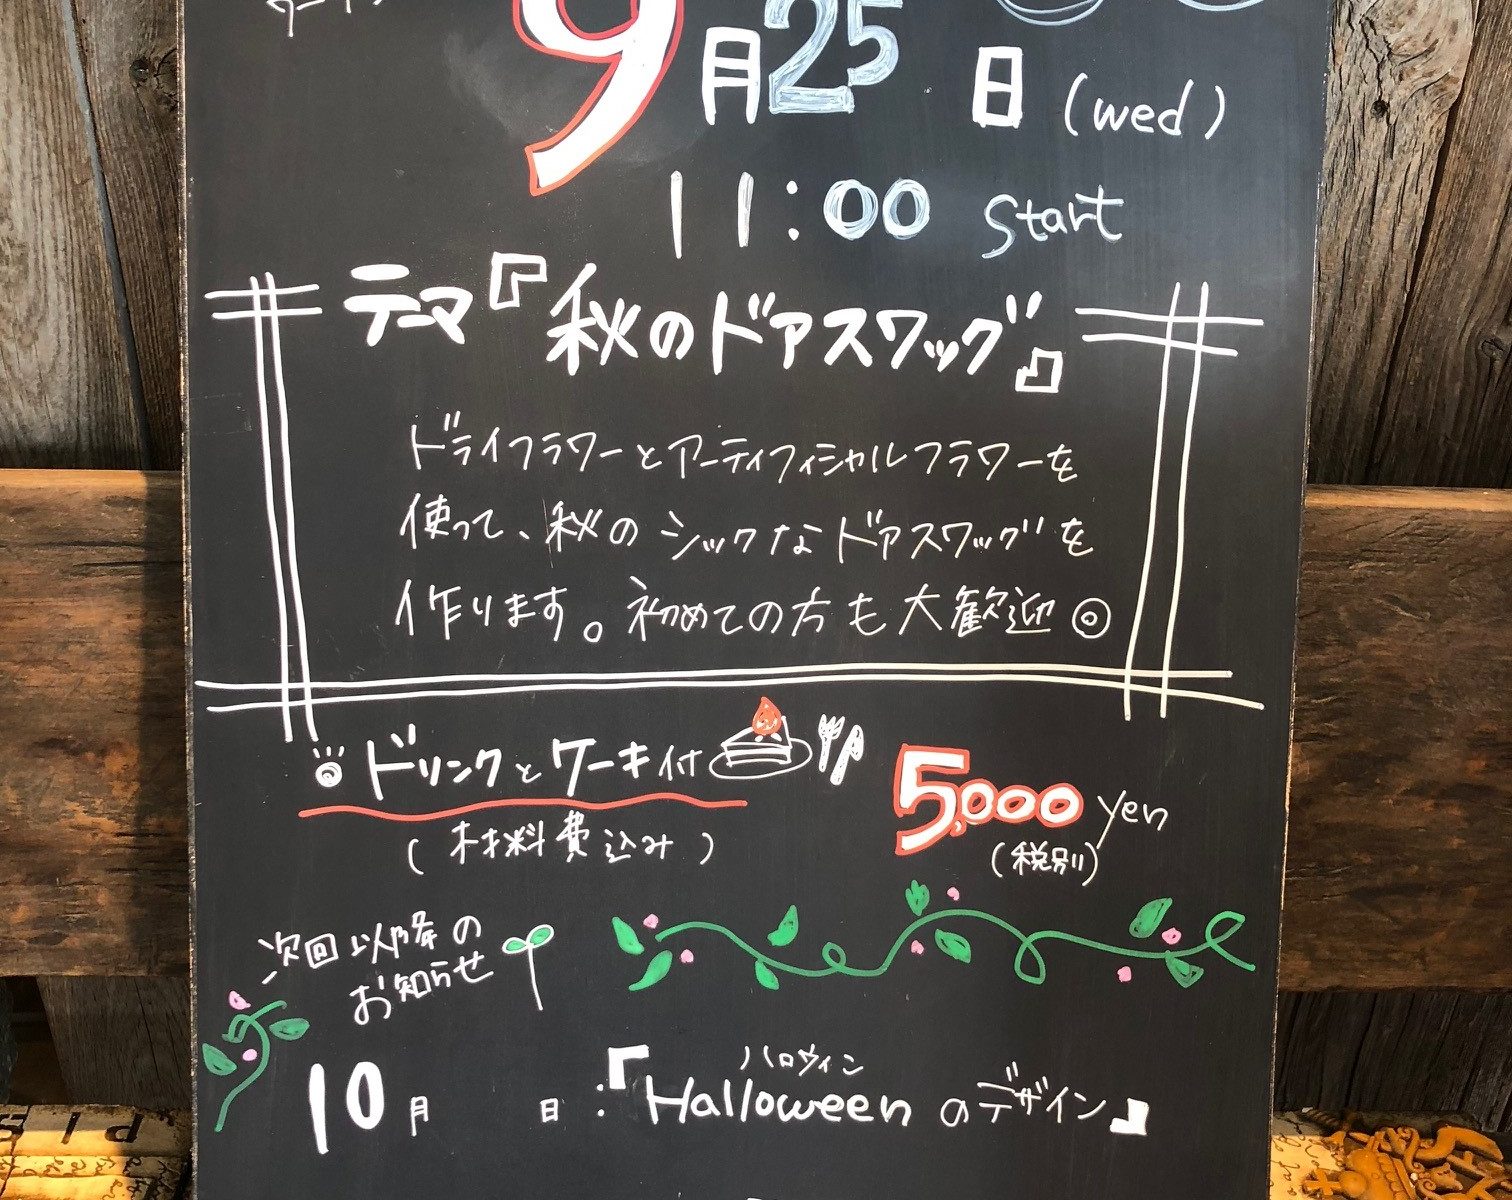 9月25日(wed)
11:00 Start
テーマ『秋のドアスワッグ』
ドライフラワーとアーティフィシャルフラワーを
使って、秋のシックなドアスワッグを
作ります。初めての方も大歓迎◎
ドリンクとケーキ付
(材料費込み)
5,000 yen
(税別)
次回以降の
お知らせ
10月 日:『Halloweenのデザイン』
ハロウィン
PIS